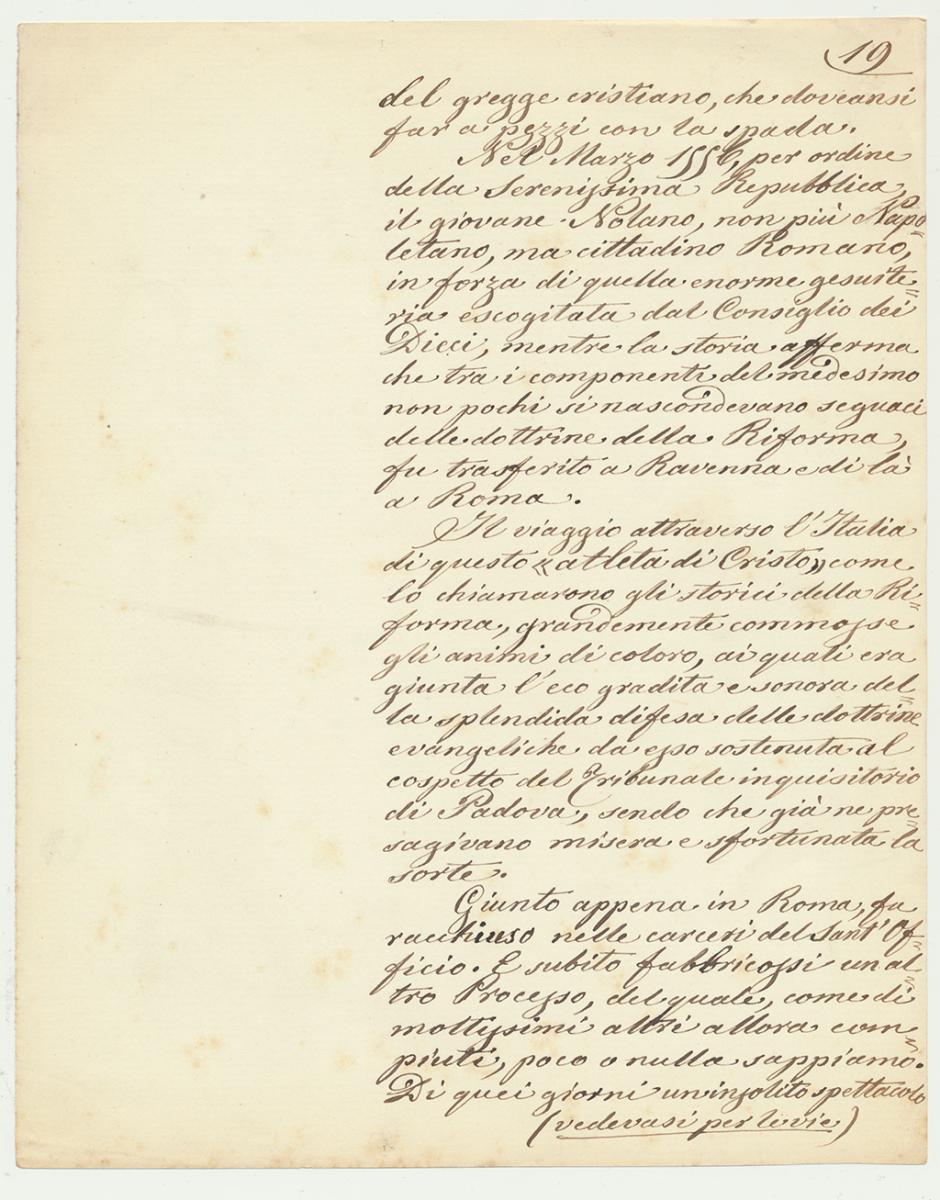 19
del gregge cristiano, che doveansi
far a pezzi con la spada.
Nel Marzo 1556, per ordine
della Serenissima Repubblica,
il giovane Nolano, non più Napo=
letano, ma cittadino Romano,
in forza di quella enorme gesuite=
ria escogitata dal Consiglio dei
Dieci, mentre la storia afferma
che tra i componenti del medesimo
non pochi si nascondevano seguaci
delle dottrine della Riforma,
fu trasferito a Ravenna e di là
a Roma.
Il viaggio attraverso l'Italia
di questo «atleta di Cristo» come
lo chiamarono gli storici della Ri=
forma, grandemente commosse
gli animi di coloro, ai quali era
giunta l'eco gradita e sonora del=
la splendida difesa delle dottrine
evangeliche da esso sostenuta al
cospetto del Tribunale inquisitorio
di Padova, sendo che già ne pre=
sagivano misera e sfortunata la
sorte.
Giunto appena in Roma, fu
racchiuso nelle carceri del Sant'Of=
ficio. E subito fabbricossi un al=
tro Processo, del quale, come di
moltissimi altri allora com=
piuti, poco o nulla sappiamo.
Di quei giorni un insolito spettacolo
(vedevasi per le vie)